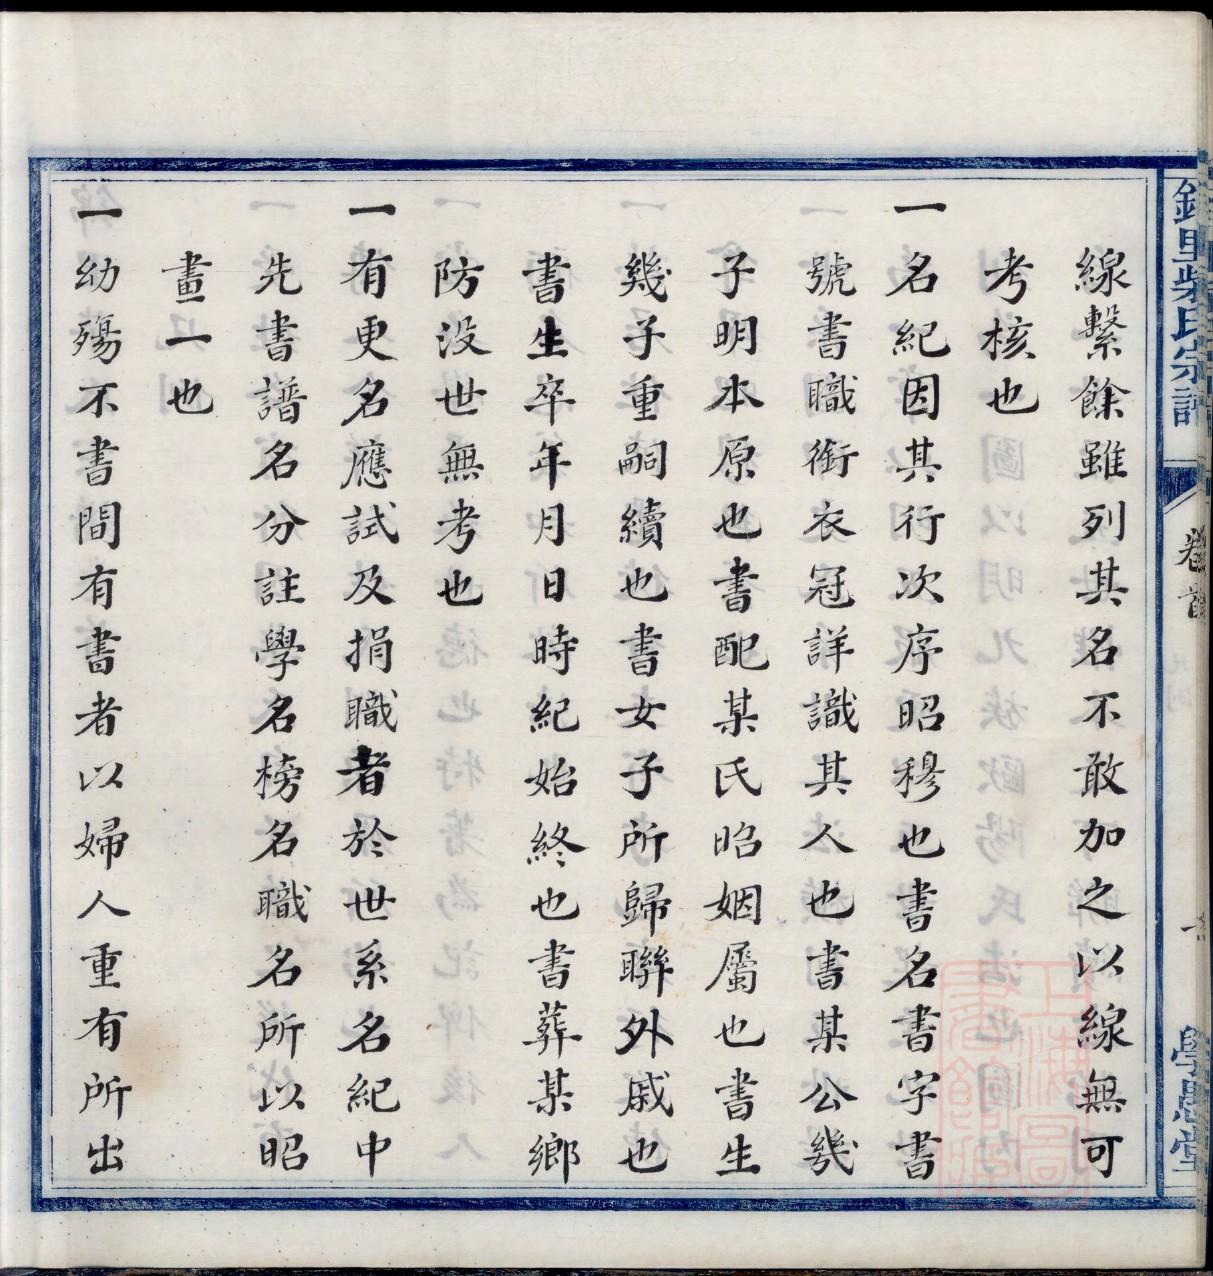 線繫餘雖列其名不敢加之以線無可
考核也
一名紀因其行次序昭穆也書名書字書
號書職銜衣冠詳識其人也書某公幾
子明本原也書配某氏昭姻屬也書生
幾子重嗣續也書女子所歸聯外戚也
書生卒年月日時紀始終也書葬某鄉
防没世無考也
一有更名應試及捐職者於世系名紀中
先書譜名分註學名榜名職名所以昭
畫一也
一幼殤不書間有書者以婦人重有所出
氏宗譜
卷首
學愚堂